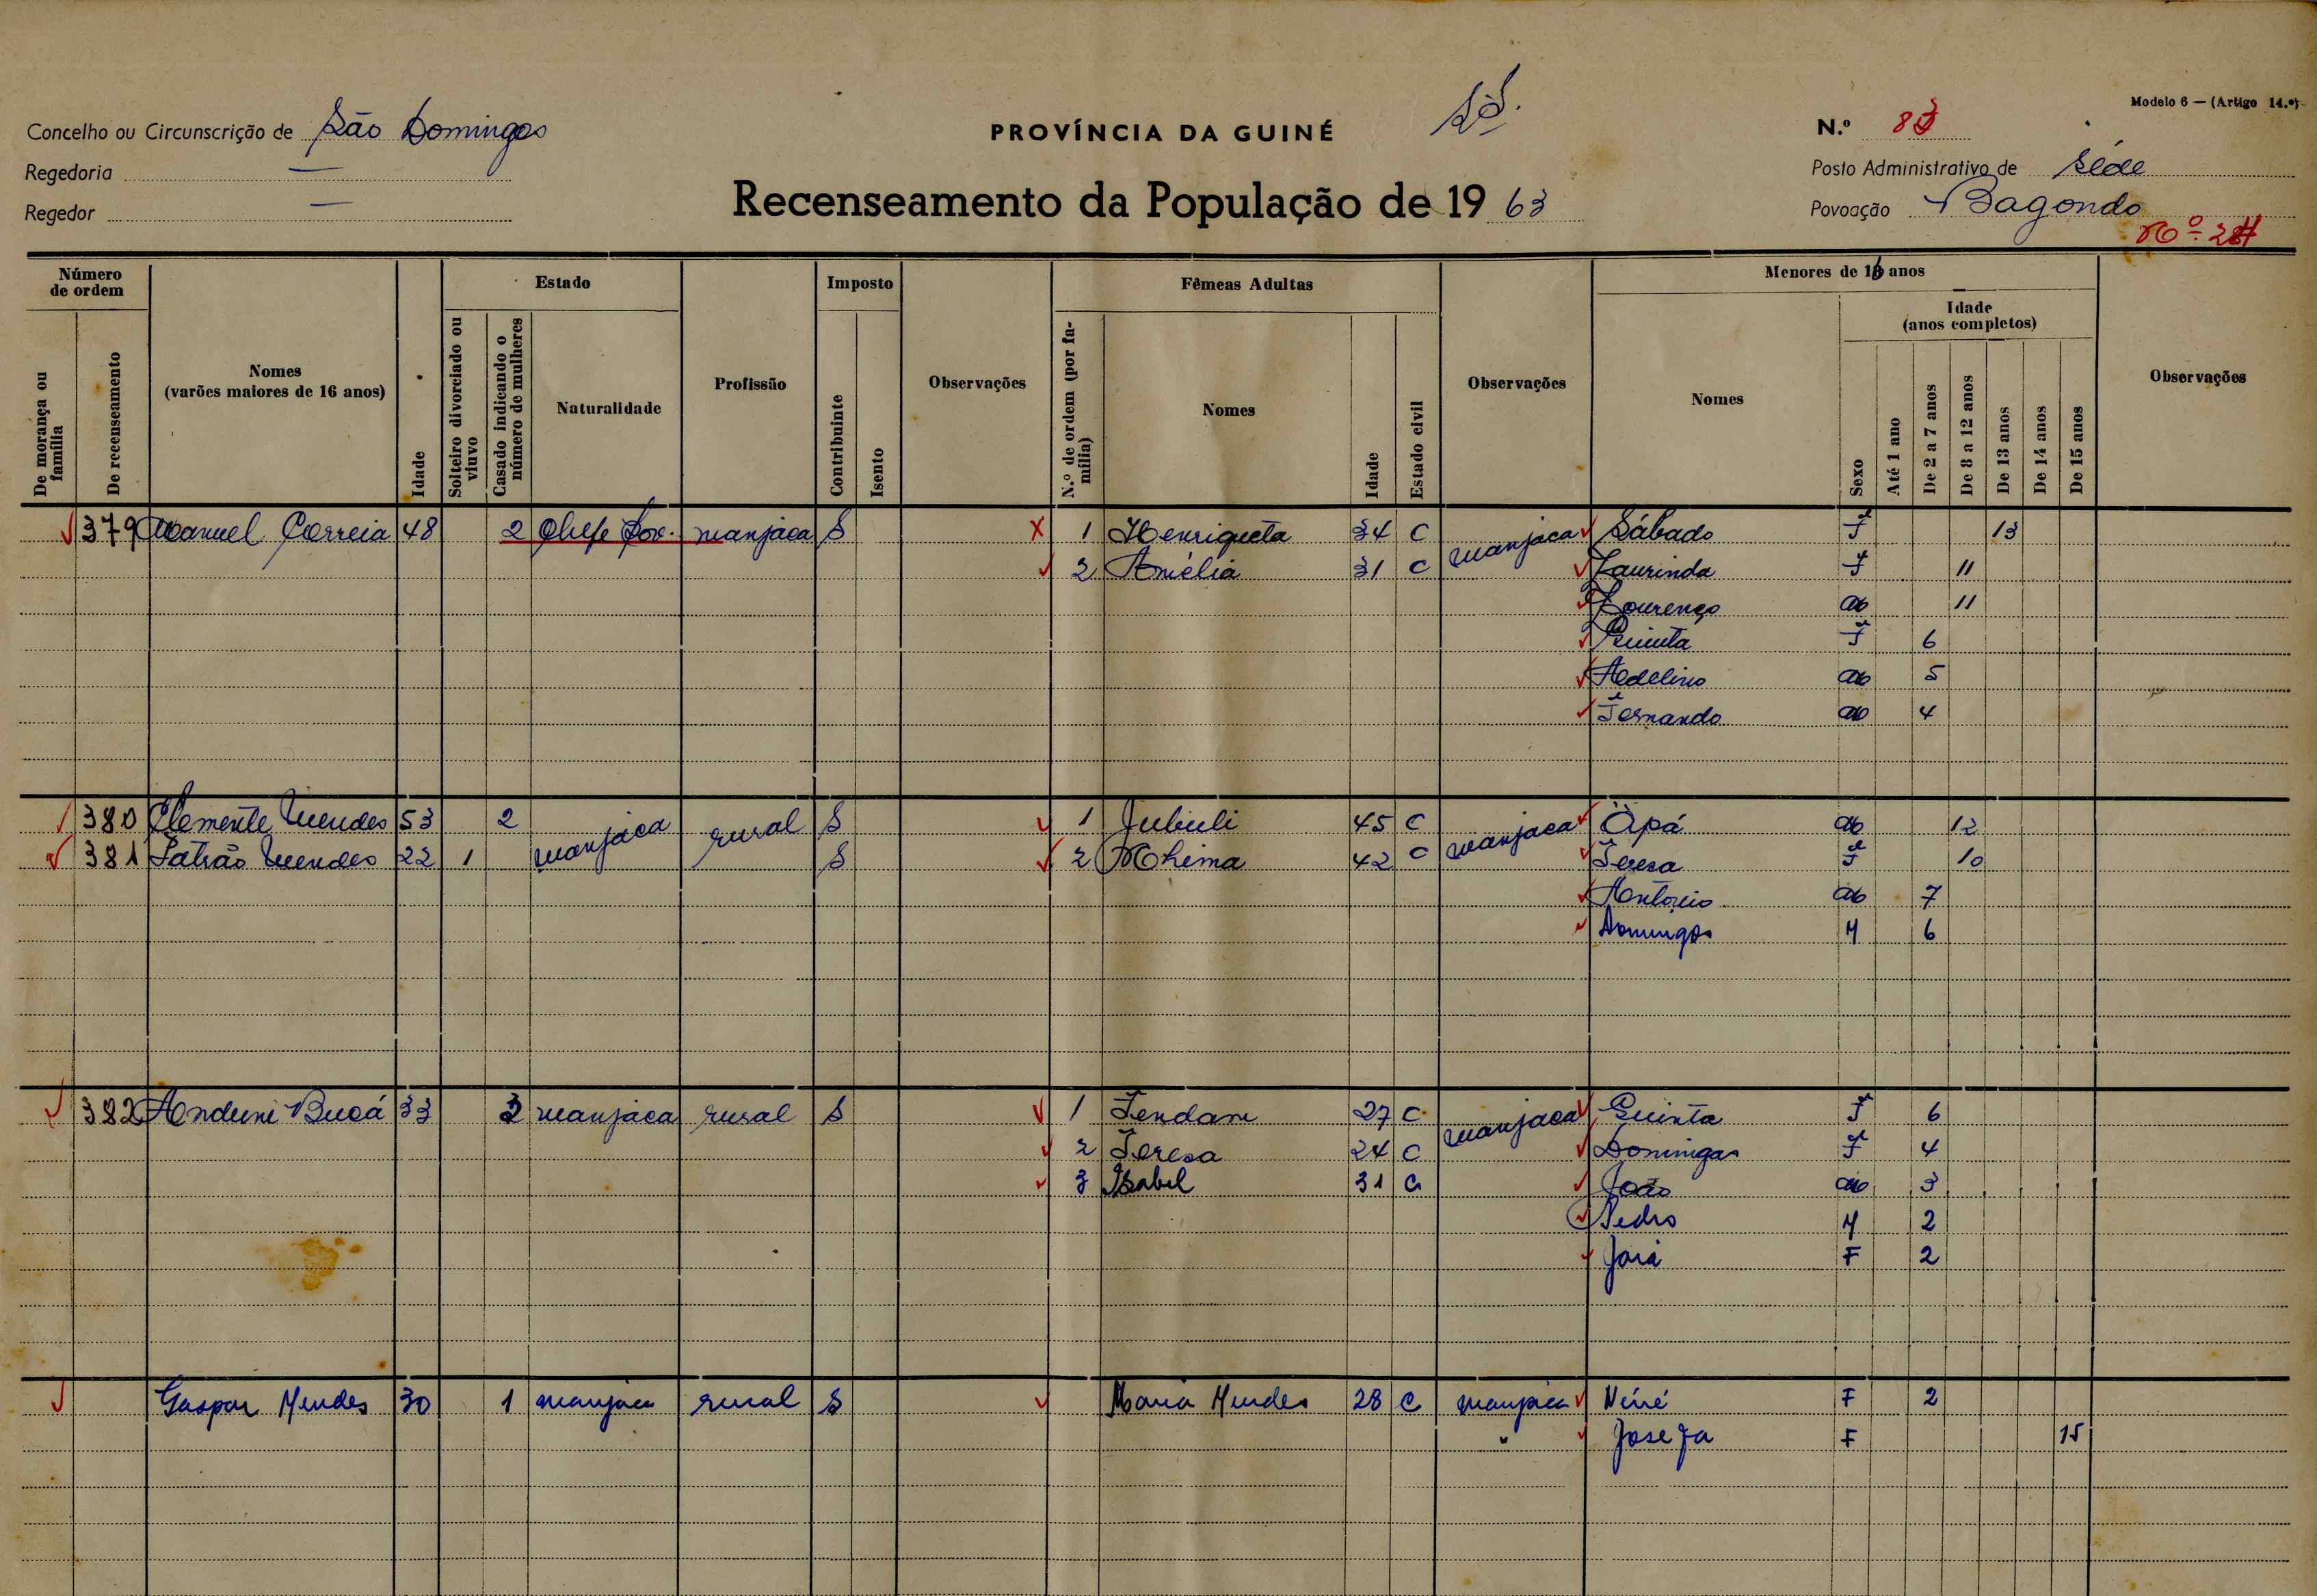 Modelo 6 — (Artigo 14.º)
Concelho ou Circunscrição de São Domingos
PROVÍNCIA DA GUINÉ
N.º 83
Regedoria —
Posto Administrativo de Séde
Regedor —
Recenseamento da População de 1963
Povoação Bagondo
Nº
Número de ordem
Estado
Imposto
Fêmeas Adultas
Menores de 16 anos
De morança ou família
De recenseamento
Nomes (varões maiores de 16 anos)
Idade
Solteiro divorciado ou viuvo
Casado indicando o número de mulheres
Naturalidade
Profissão
Contribuinte
Isento
Observações
N.º de ordem (por família)
Nomes
Idade
Estado civil
Observações
Nomes
Sexo
Idade (anos completos)
Até 1 ano
De 2 a 7 anos
De 8 a 12 anos
De 13 anos
De 14 anos
De 15 anos
Observações
379 Manuel Correia 48 2 Chefe Pov. manjaca S 1 Henriqueta 34 C manjaca Sábado F 13
2 Amélia 31 C Laurinda F 11
Lourenço M 11
Quinta F 6
Adelino M 5
Fernando M 4
380 Clemente Mendes 53 2 manjaca rural S 1 Jubuli 45 C manjaca Apá M 12
381 Patrão Mendes 22 1 S 2 Nhima 42 C Teresa F 10
António M 7
Domingos M 6
382 Anduni Bucá 33 3 manjaca rural S 1 Tendam 27 C manjaca Quinta F 6
2 Teresa 24 C Domingas F 4
3 Isabel 31 C João M 3
Pedro M 2
F 2
Gaspar Mendes 30 1 manjaca rural S Maria Mendes 28 C manjaca Néné F 2
" Josefa F 15